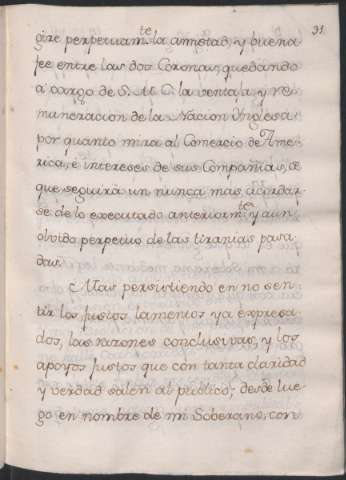 31
gire perpetuam.te la amistad, y buena
fee entre las dos Coronas, quedando
a cargo de S. M. C. la ventaja y re-
muneracion de la Nacion Ynglesa
por quanto mira al Comercio de Ame-
rica, è intereses de sus Compañias, de
que seguirà un nunca mas acordar-
se de lo executado anteriorm.te y aun
olvido perpetuo de las tiranias pasa-
das.
Mas persistiendo en no sen-
tir los justos lamentos ya expresa-
dos, las razones conclusivas, y los
apoyos justos que con tanta claridad
y verdad salen al publico; desde lue-
go en nombre de mi Soberano, con